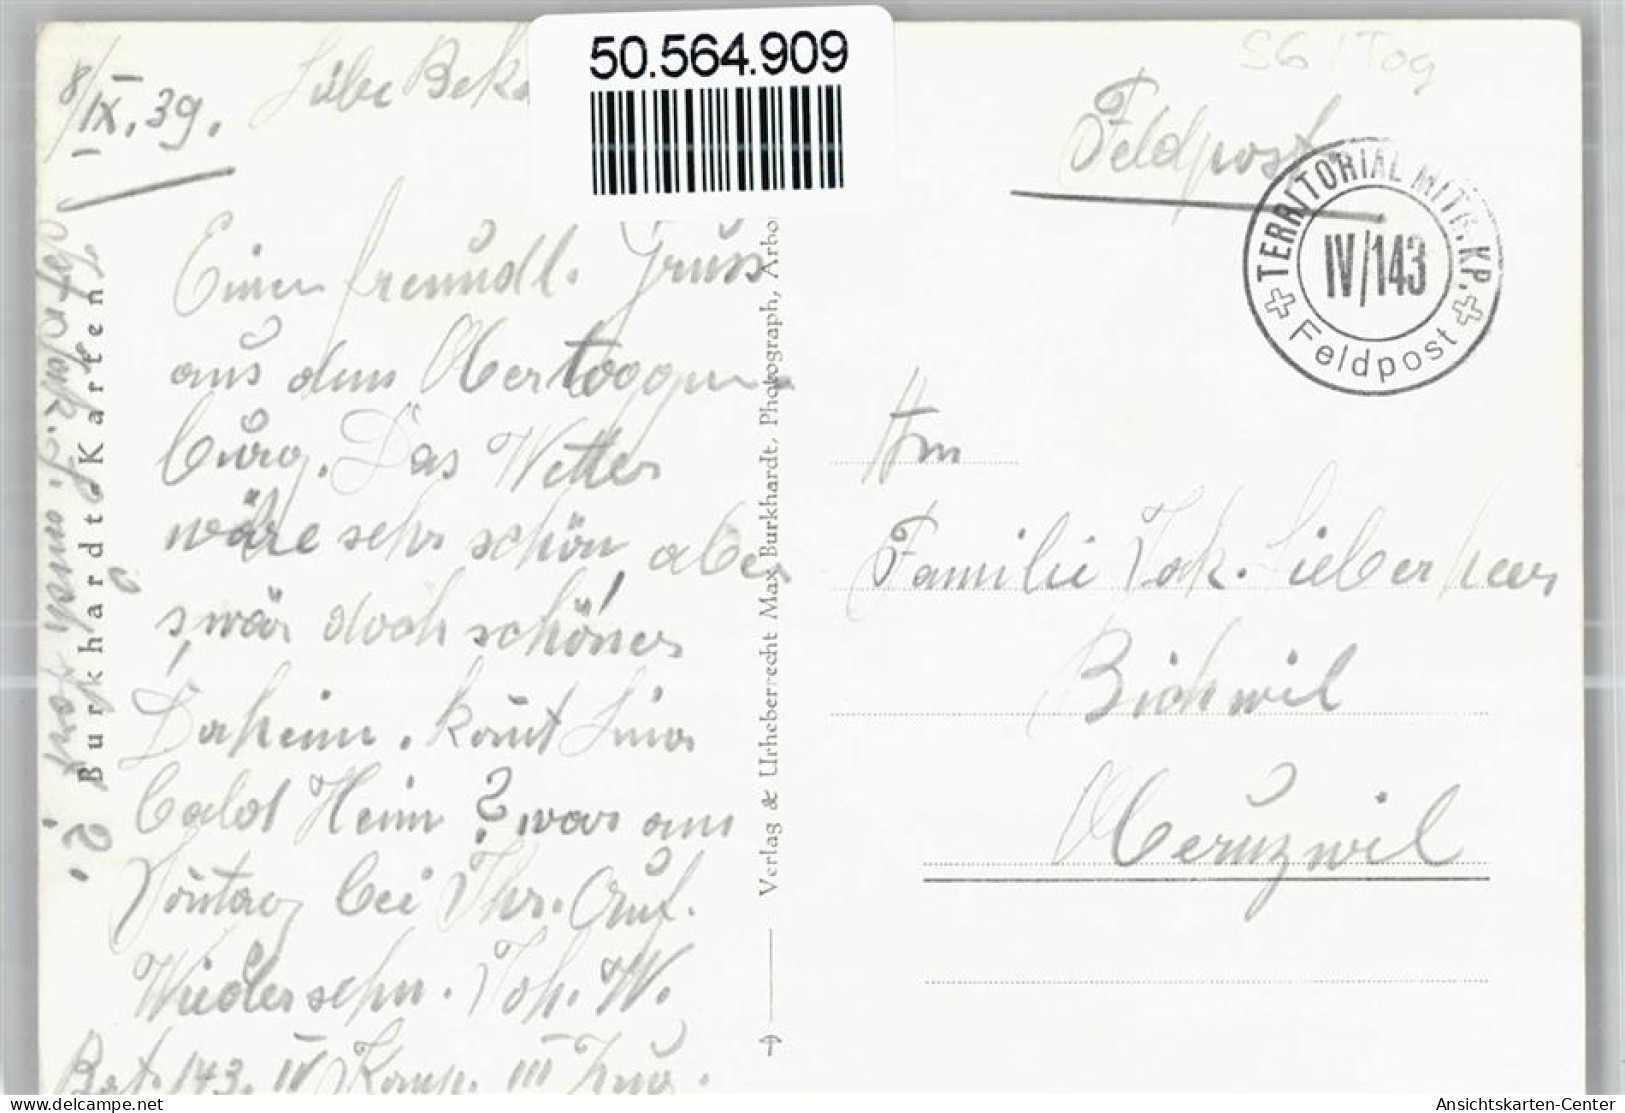 50.564.909
8/IX.39.
Liebe Bek
Einen freundl. Gruss
aus dem Obertoggen
burg. Das Wetter
wäre sehr schön aber
s'wär doch schöner
Daheim. kommt Lina
bald Heim? war am
Sonntag bei Thr. Auf.
Wiedersehn. Joh. W.
Bat. 143. IV Komp. III Zug.
Burkhardt-Karten
Verlag & Urheberrecht Max Burkhardt, Photograph, Arbo
S6 / Tog
Feldpost.
TERRITORIAL MITR. KP.
IV/143
Feldpost
An
Familie Jak. Lieberherr
Bichwil
Oberuzwil
Ansichtskarten-Center
Delcampe.net